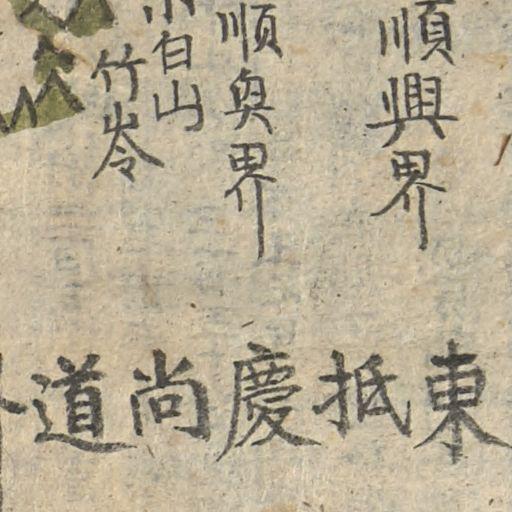 順興界
順興界
小白山
竹岺
東抵慶尚道